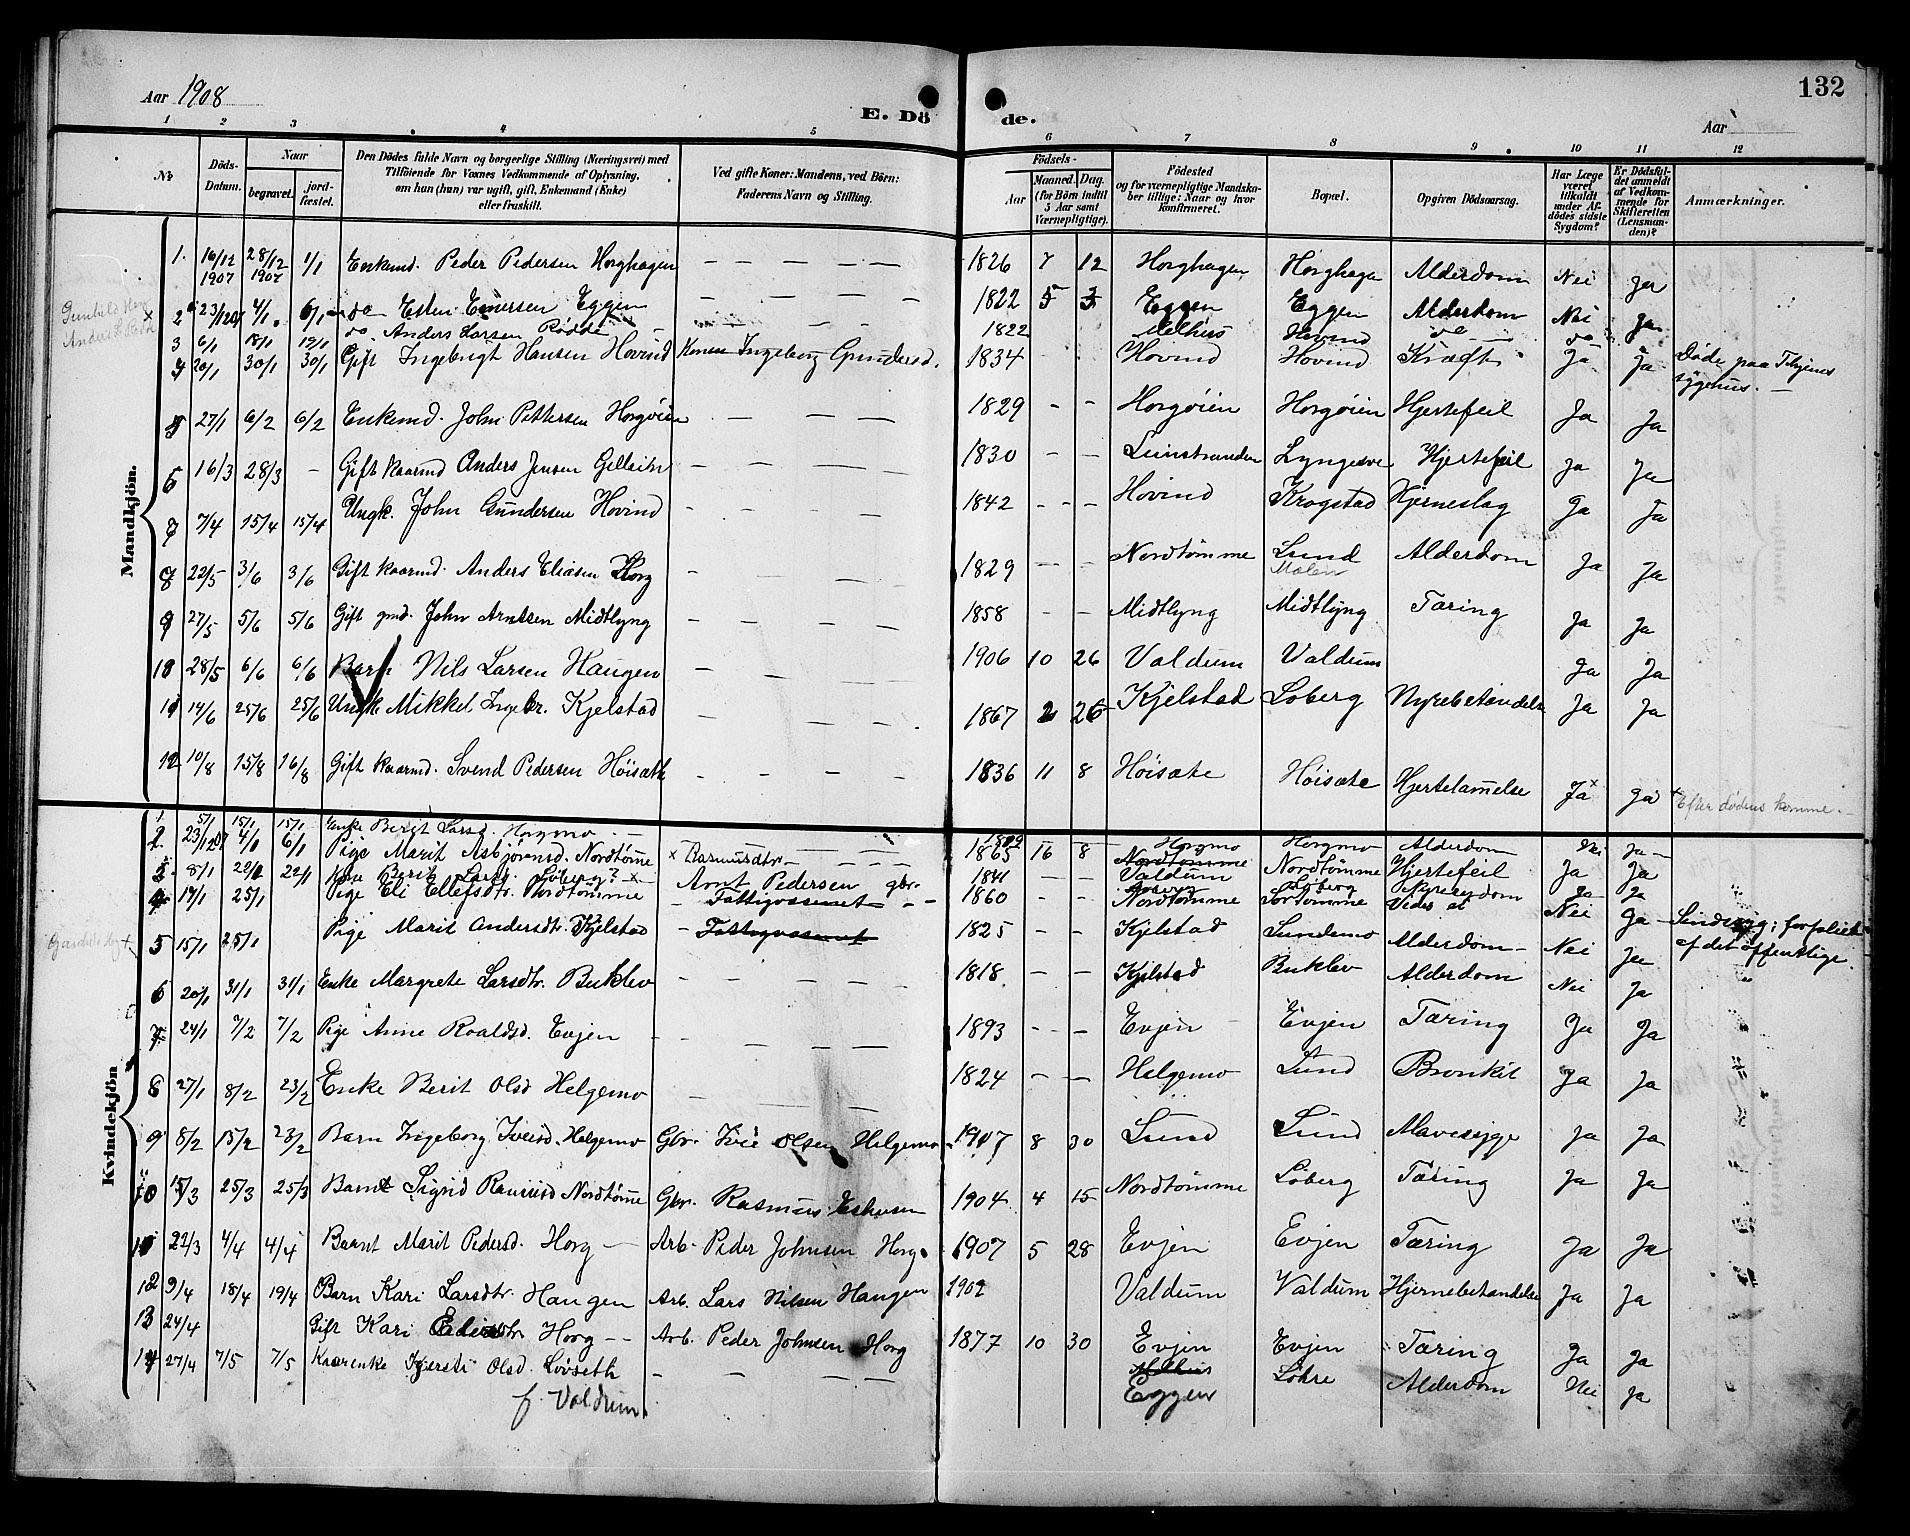 Aar 1908
E. Dö
de.
132
Aar
1 2 3 4 5 6 7 8 9 10 11 12
No
Döds-Datum.
Naar
begravet.
jord-fæstet.
Den Dödes fulde Navn og borgerlige Stilling (Næringsvei) med Tilföiende for Voxnes Vedkommende af Oplysning, om han (hun) var ugift, gift, Enkemand (Enke) eller fraskilt.
Ved gifte Koner: Mandens, ved Börn: Faderens Navn og Stilling.
Födsels-
Aar
Maaned. Dag.
(for Börn indtil 5 Aar samt Værnepligtige).
Födested og for værnepligtige Mandskaber tillige: Naar og hvor konfirmeret.
Bopæl.
Opgiven Dödsaarsag.
Har Læge været tilkaldt under Afdödes sidste Sygdom?
Er Dödsfaldet anmeldt af Vedkommende for Skifteretten (Lensmanden)?
Anmærkninger.
Mandkjön.
1. 16/12 1907 28/12 1907 1/1 Enkemd. Peder Pedersen Horghagen — — — — 1826 7 12 Horghagen Horghagen Alderdom Nei Ja
2 23/12 07 4/1 6/1 do Esten Einersen Eggen — — — — 1822 5 3 Eggen Eggen Alderdom Nei Ja
3 6/1 18/1 19/1 do Anders Larsen Rødde — — — 1822 Melhus Hovind do do
4 20/1 30/1 30/1 Gift Ingebrigt Hansen Hovind Konen Ingeborg Gundersd. 1834 Hovind Hovind Kræft Ja Ja Døde paa Tilsjenes sygehus. —
5 27/1 6/2 6/2 Enkemd. John Pettersen Horgøien — — — 1829 - - Horgøien Horgøien Hjertefeil Ja Ja
6 16/3 28/3 - Gift kaarmd Anders Jensen — — — — 1830 - - Lyngesve Hjertefeil Ja Ja
7/4 15/4 15/4 Ungk. John Gundersen Hovind — — — — 1842 - - Hovind Krogstad Hjerneslag Ja Ja
8 22/5 3/6 3/6 Gift kaarmd. Anders Eliasen Horg — — — — 1829 - - Nordtømme Lund Alderdom Ja Ja
Molen
9 27/5 5/6 5/6 Gift gmd. John Arntsen Midtlyng — — — — 1858 - - Midtlyng Midtlyng Tæring Ja Ja
10 28/5 6/6 6/6 Barn Nils Larsen Haugen — 1906 10 26 Valdum Valdum Ja Ja
11 14/6 25/6 25/6 Ungk. Mikkel Ingebr. Kjelstad — — — — 1867 2 26 Kjelstad Loberg Nyrebetændelse Ja Ja
12 10/8 15/8 16/8 Gift kaarmd. Svend Pedersen Höisæth — — — — 1836 11 8 Höisæte Höisæte Hjertelamelse Ja x Ja x Efter dødens komme. —
Kvindekjön
1. 5/1 15/1 15/1 Enke Berit Larsd. Horgmo — Horgmo Horgmo Alderdom Nei Ja —
2. 23/12 07 4/1 6/1 Pige Marit Asbjörensd. Nordtømme x Rasmusdtr — 1865 16 8 Nordtømme Nordtømme Hjertefeil Ja Ja
3 8/1 22/1 22/1 Kone Berit Larsd. Løberg? x Arnt Pedersen gbr. 1841 - - Valdum Løberg Ja Ja
4 14/1 25/1 Pige Eli Ellefsdtr. Nordtømme Fattigvæsenet 1860 - - Nordtømme Sørtømme Nei Ja
5 15/1 25/1 Pige Marit Andersdtr. Kjelstad — Fattigvæsenet 1825 - - Kjelstad Lundemo Alderdom — Nei Ja Sindssyg; forpleiet af det offentlige.
6 20/1 31/1 31/1 Enke Margrete Larsdtr. Buklev — — — 1818 - - Kjelstad Buklev Alderdom Nei Ja
7 24/1 7/2 7/2 Pige Anne Roaldsd. Evjen — — — 1893 - - Evjen Evjen Tæring Ja Ja
8 27/1 8/2 23/2 Enke Berit Olsd Helgemo — — — 1824 - - Helgemo Lund Bronkit Ja Ja
9 8/2 15/2 23/2 Barn Ingeborg Iversd. Helgemo Gbr. Iver Olsen Helgemo 1907 8 30 Lund Lund Mavesyge Ja Ja
10 15/3 25/3 25/3 Barn Sigrid Rasmusd Nordtømme Gbr. Rasmus Estensen 1904 4 15 Nordtømme Løberg Tæring Ja Ja
11 22/3 4/4 4/4 Barn Marit Pedersd. Horg — Arb. Peder Johnsen Horg. 1907 5 28 Evjen Evjen Tæring Ja Ja
12 9/4 18/4 19/4 Barn Kari Larsdtr. Haugen Arb. Lars Nilsen Haugen 1902 Valdum Valdum Hjernebetændelse Ja Ja
13 24/4 Gift Kari Horg — Arb. Peder Johnsen Horg 1877 10 30 Evjen Evjen Tæring Ja Ja
14 27/4 7/5 7/5 Kaarenke Kjersti Olsd. Løvseth — — — Melhus Eggen Løhre Alderdom Nei Ja
f. Valdum.